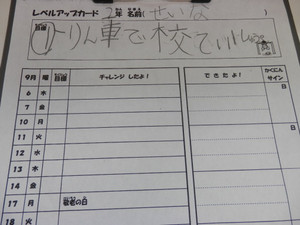 レベルアップカード 2年 名前(せいな)
目標
①一りん車で校てい
9月 曜日 目標 チャレンジしたよ! できたよ! かくにんサイン
6 水 日
7 金
10 月
11 火
12 水
13 木
14 金 日
17 月 敬老の日
18 火